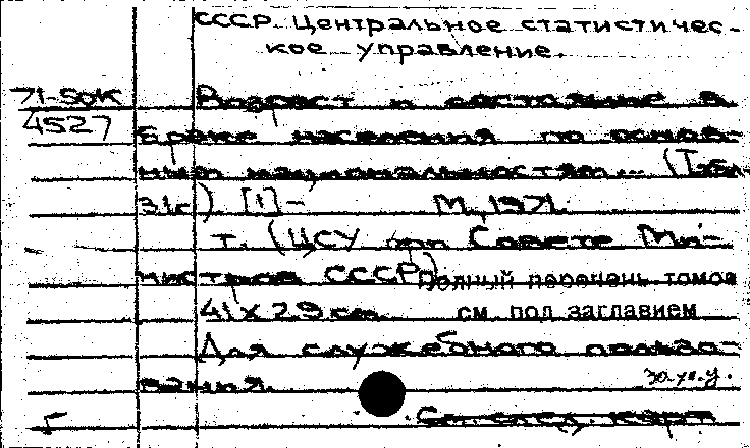 СССР. Центральное статистичес-
кое управление.
71-50К
4527
Возраст и состояние в
браке населения по основ-
ным национальностям... (Табл.
31с). [1]- М., 1971.
т. (ЦСУ при Совете Ми-
нистров СССР)
Полный перечень томов
41 x 29 см. см. под заглавием
Для служебного пользо-
вания.
См. след. карт